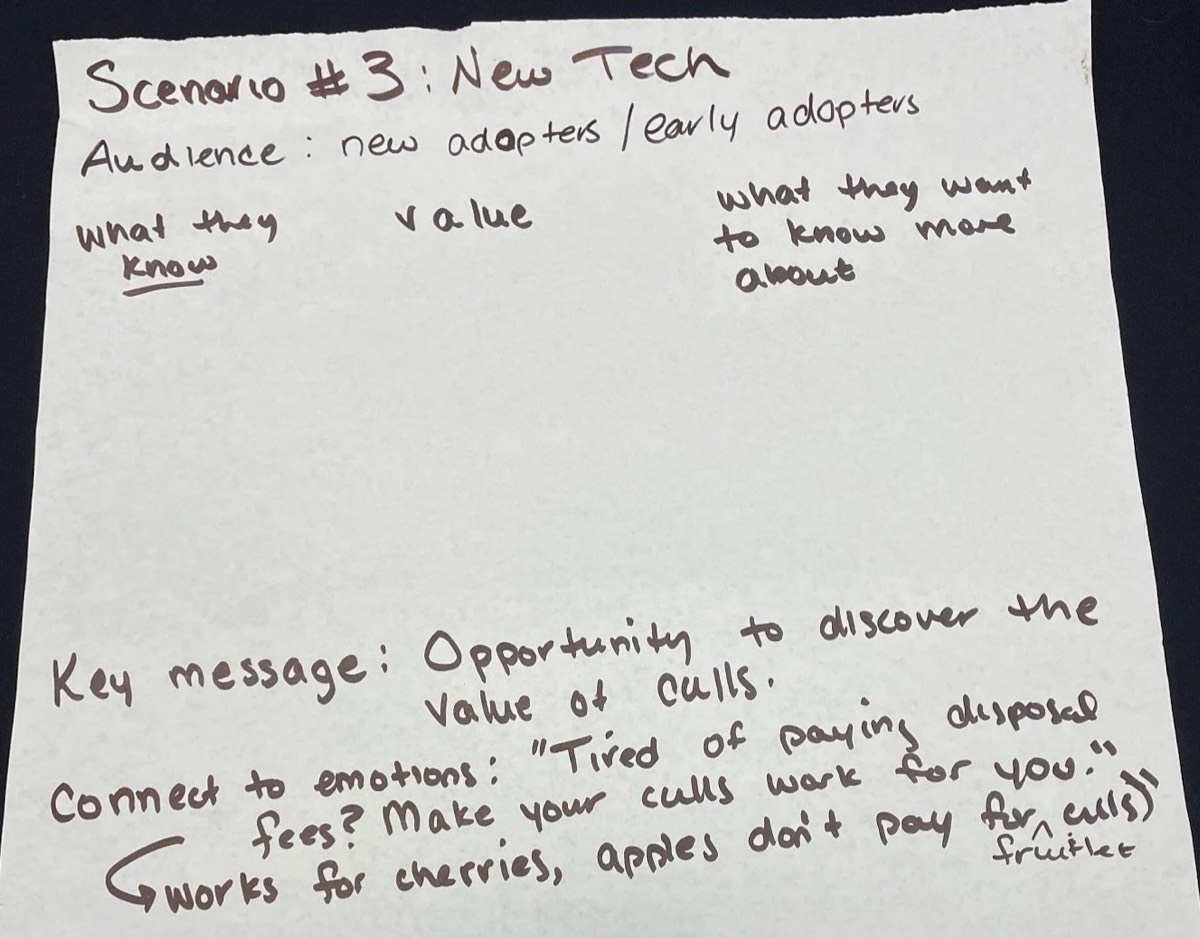 Scenario #3: New Tech
Audience: new adopters / early adopters
what they know
value
what they want to know more about
Key message: Opportunity to discover the
value of culls.
Connect to emotions: "Tired of paying disposal
fees? Make your culls work for you."
works for cherries, apples don't pay for ^ culls)"
fruitlet